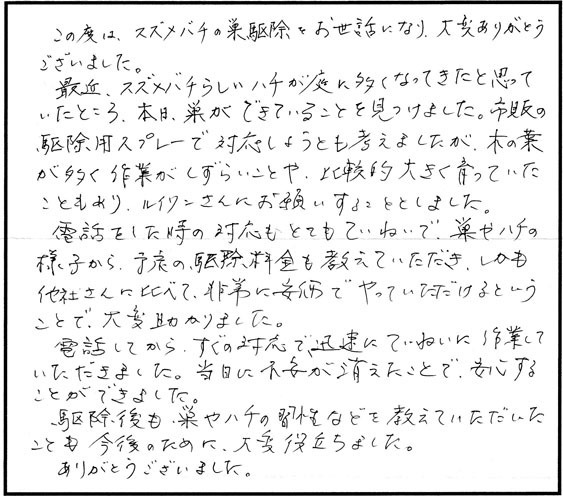 この度は、スズメバチの巣駆除をお世話になり、大変ありがとう
ございました。
最近、スズメバチらしいハチが庭に多くなってきたと思って
いたところ、本日、巣ができていることを見つけました。市販の
駆除用スプレーで対応しようとも考えましたが、木の葉
が多く作業がしずらいことや、比較的大きく育っていた
こともあり、ルイワンさんにお願いすることとしました。
電話をした時の対応もとてもていねいで、巣やハチの
様子から、予定の駆除料金も教えていただき、しかも
他社さんに比べて、非常に安価でやっていただけるという
ことで、大変助かりました。
電話してから、すぐの対応で迅速にていねいに作業して
いただきました。当日に不安が消えたことで、安心する
ことができました。
駆除後も、巣やハチの習性などを教えていただいた
ことも今後のために、大変役立ちました。
ありがとうございました。